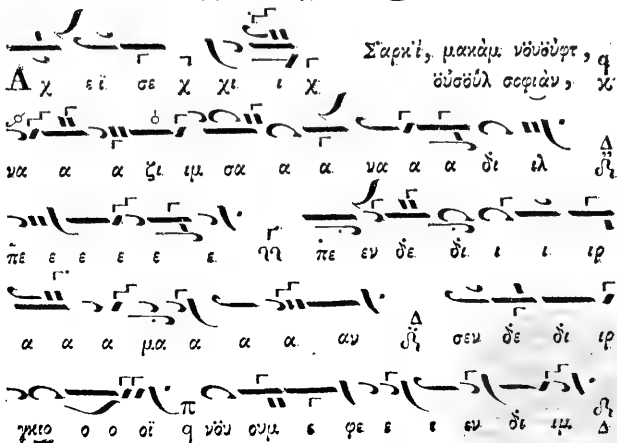 Σ̇αρκί, μακὰμ νὄυὄυφτ, q
ὄυσοὺλ σοφιὰν, χ
Α χ εϊ σε χ χι ι χ
να α α ζι ιμ σα α α να α α δι ιλ Δ
π̇ε ε ε ε ε ε Γ π̇ε εν δ̇ε δ̇ι ι ι ιρ
α α α μα α α α αν Δ σεν δ̇ε δι ιρ
γκιο ο ο οϊ π q νὄυ ουμ ε φε ε ι εν δ̇ε ιμ Δ